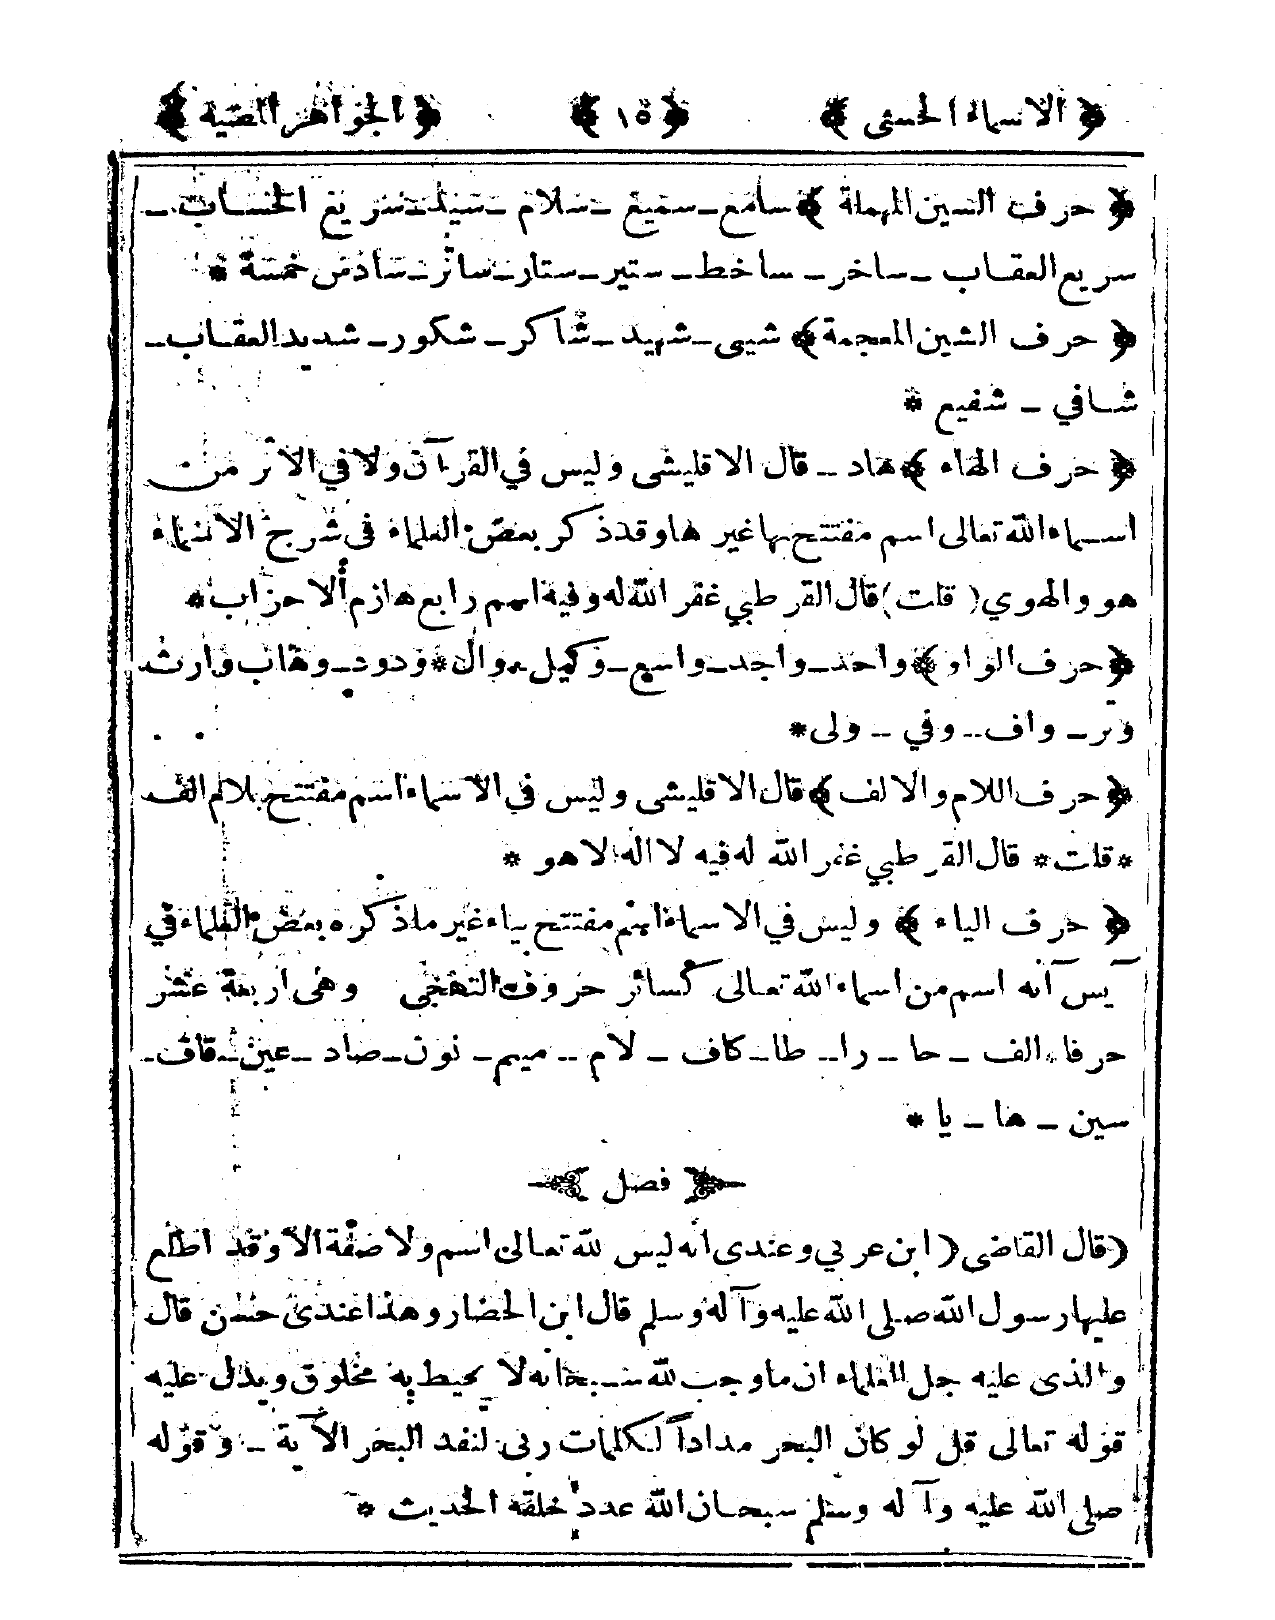 ﴿الاسماء الحسنى﴾ ﴿١٥﴾ ﴿الجواهر المضية﴾
﴿حرف السين المهملة﴾ سامع ـ سميع ـ سلام ـ سيد ـ سريع الحساب ـ
سريع العقاب ـ ساخر ـ ساخط ـ ستير ـ ستار ـ ساتر ـ سادس خمسة *
﴿حرف الشين المعجمة﴾ شيى ـ شهيد ـ شاكر ـ شكور ـ شديد العقاب ـ
شافي ـ شفيع *
﴿حرف الهاء﴾ هاد ـ قال الاقليشى وليس في القرآن ولا في الاثر من
اسماء الله تعالى اسم مفتتح بها غير ها وقد ذكر بعض العلماء فى شرح الاسماء
هو والهوي (قلت) قال القرطبي غفر الله له وفيه اسم رابع هازم ألاحزاب *
﴿حرف الواو﴾ واحد ـ واجد ـ واسع ـ وكيل ـ وال * ودود ـ وهاب وارث
وتر ـ واف ـ وفي ـ ولى *
﴿حرف اللام والالف﴾ قال الاقليشى وليس في الاسماء اسم مفتتح بلام الف
* قلت * قال القرطبي غفر الله له فيه لا اله الا هو *
﴿حرف الياء﴾ وليس في الاسماء اسم مفتتح بياء غير ماذكره بعض العلماء في
يس آنه اسم من اسماء الله تعالى كسائر حروف التهجى وهى اربعة عشر
حرفا ـ الف ـ حا ـ را ـ طا ـ كاف ـ لام ـ ميم ـ نون ـ صاد ـ عين ـ قاف ـ
سين ـ ها ـ يا *
فصل
(قال القاضى) ابن عربي وعندى انه ليس لله تعالى اسم ولا صفة الا وقد اطلع
عليها رسول الله صلى الله عليه وآله وسلم قال ابن الحضار وهذا عندى حسن قال
والذى عليه جل العلماء ان ما وجب لله سبحانه لا يحيط به مخلوق ويدل عليه
قوله تعالى قل لو كان البحر مداداً لكلمات ربى لنفد البحر الآية ـ وقوله
صلى الله عليه وآله وسلم سبحان الله عدد خلقه الحديث *